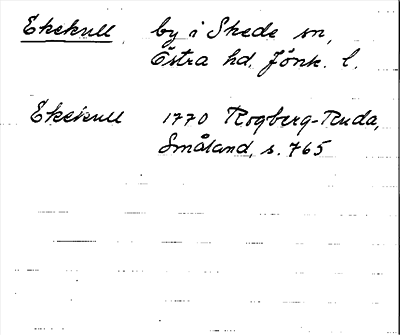 Ekekull by i Skede sn,
Östra hd, Jönk. l.
Ekekull 1770 Rogberg-Ruda,
Småland, s. 765